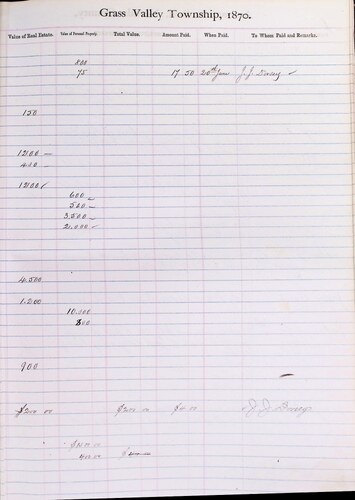 Grass Valley Township, 1870.
Value of Real Estate. Value of Personal Property. Total Value. Amount Paid. When Paid. To Whom Paid and Remarks.
800
75 17 50 20th June J. J. Dorsey ✓
150
1200 —
400 —
1200 ✓
600 —
500 —
3,500 —
2,000 ✓
4.500
1.200
10.000
800
900
$200 00 $200 00 $4 00 J J Dorsey
$400 00
400 00